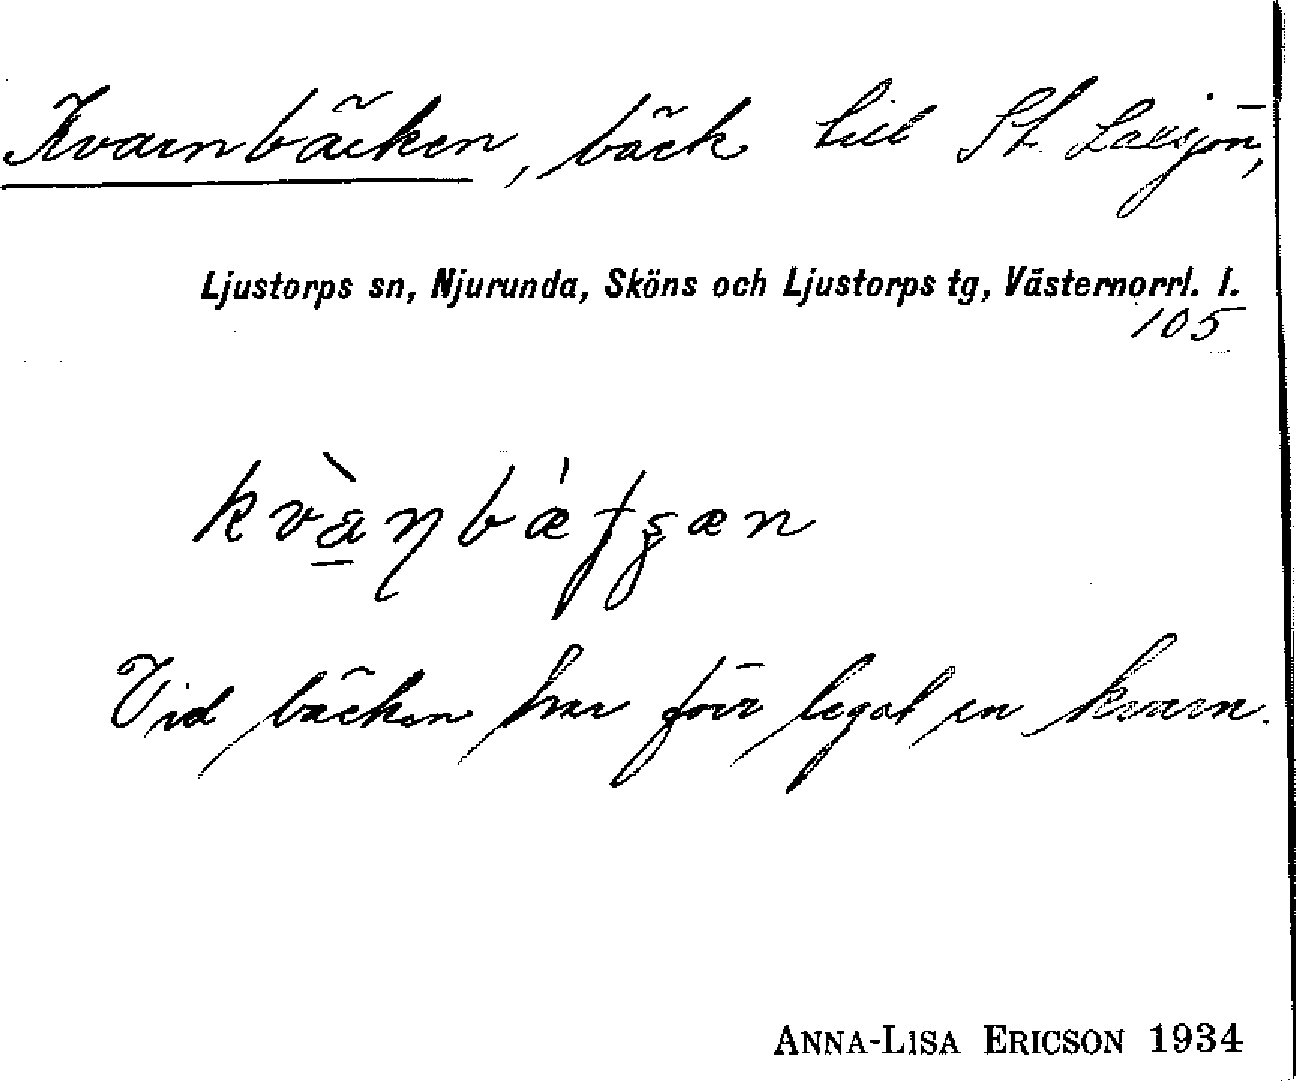 Kvarnbäcken, bäck till St. Laxsjön,
Ljustorps sn, Njurunda, Sköns och Ljustorps tg, Västernorrl. l.
105
kvàɳbæ̀ʃʂæn
Vid bäcken har förr legat en kvarn.
ANNA-LISA ERICSON 1934